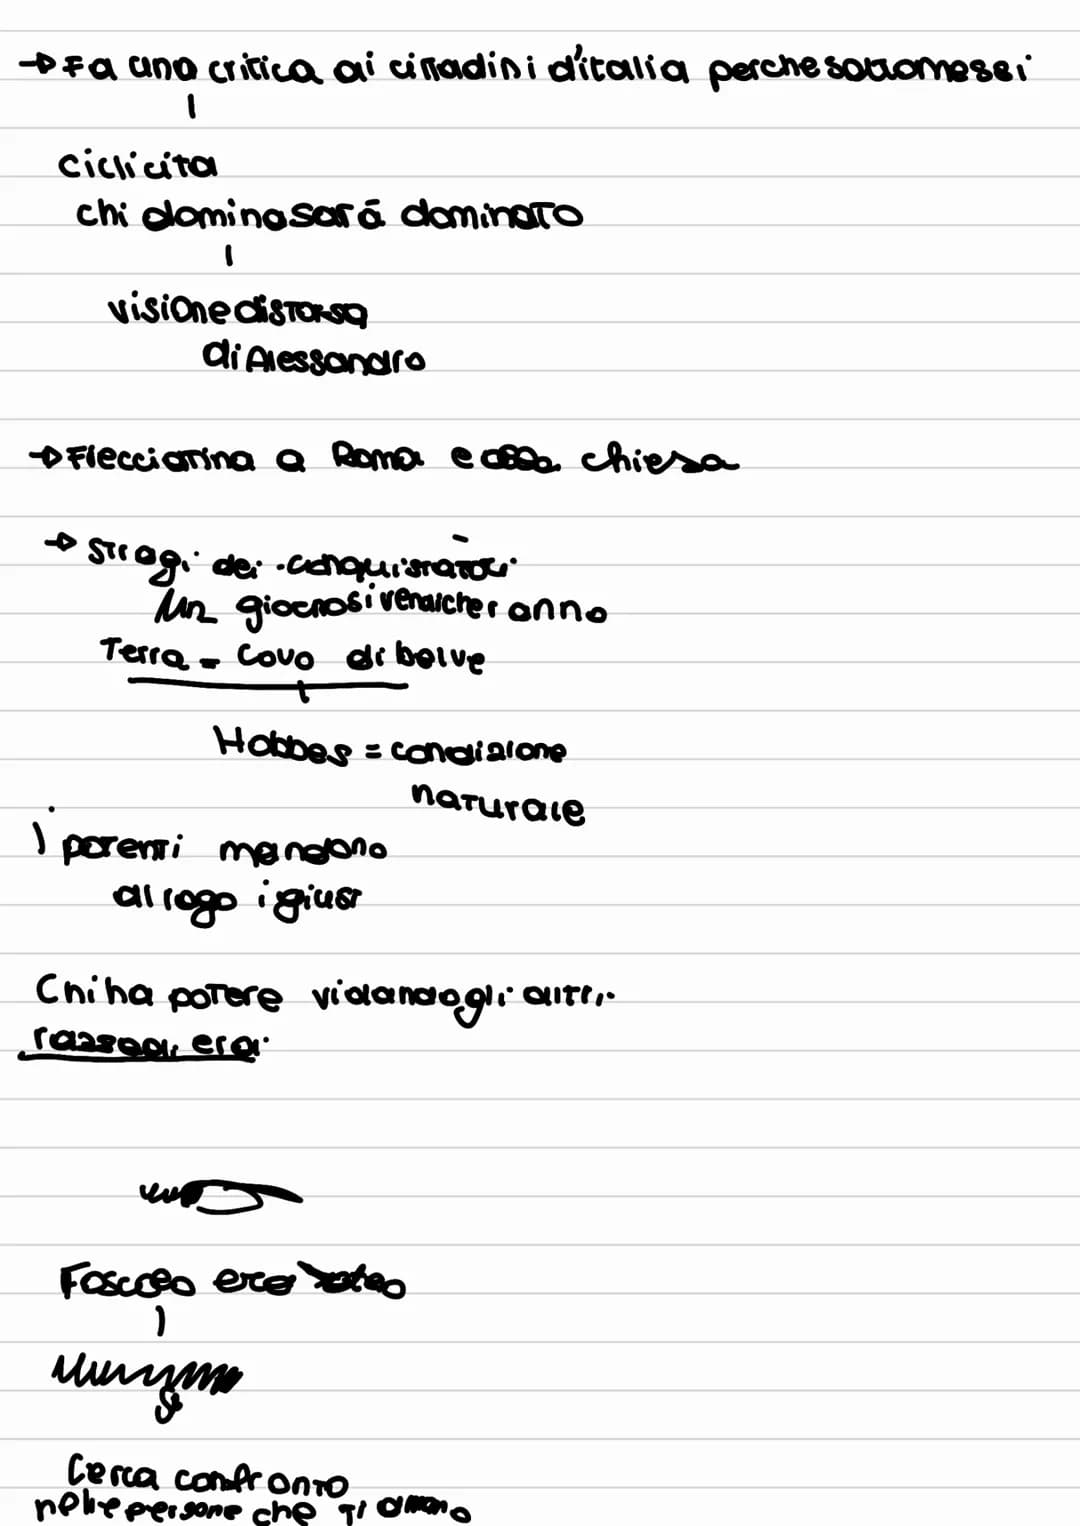 →Fa una critica ai cittadini d'italia perche sottomessi
ciclicita
chi domina sará dominato
visione distorsa
di Alessandro
→Frecciatina a Roma e alla chiesa
→ stragi dei conquistatori
un giorno si vendicheranno
Terra = covo di belve
Hobbes = condizione
naturale
i potenti mandano
al rogo i giusti
Chi ha potere violando gli altri
era
Foscolo era ateo
Cerca confronto
nelle persone che ti amano